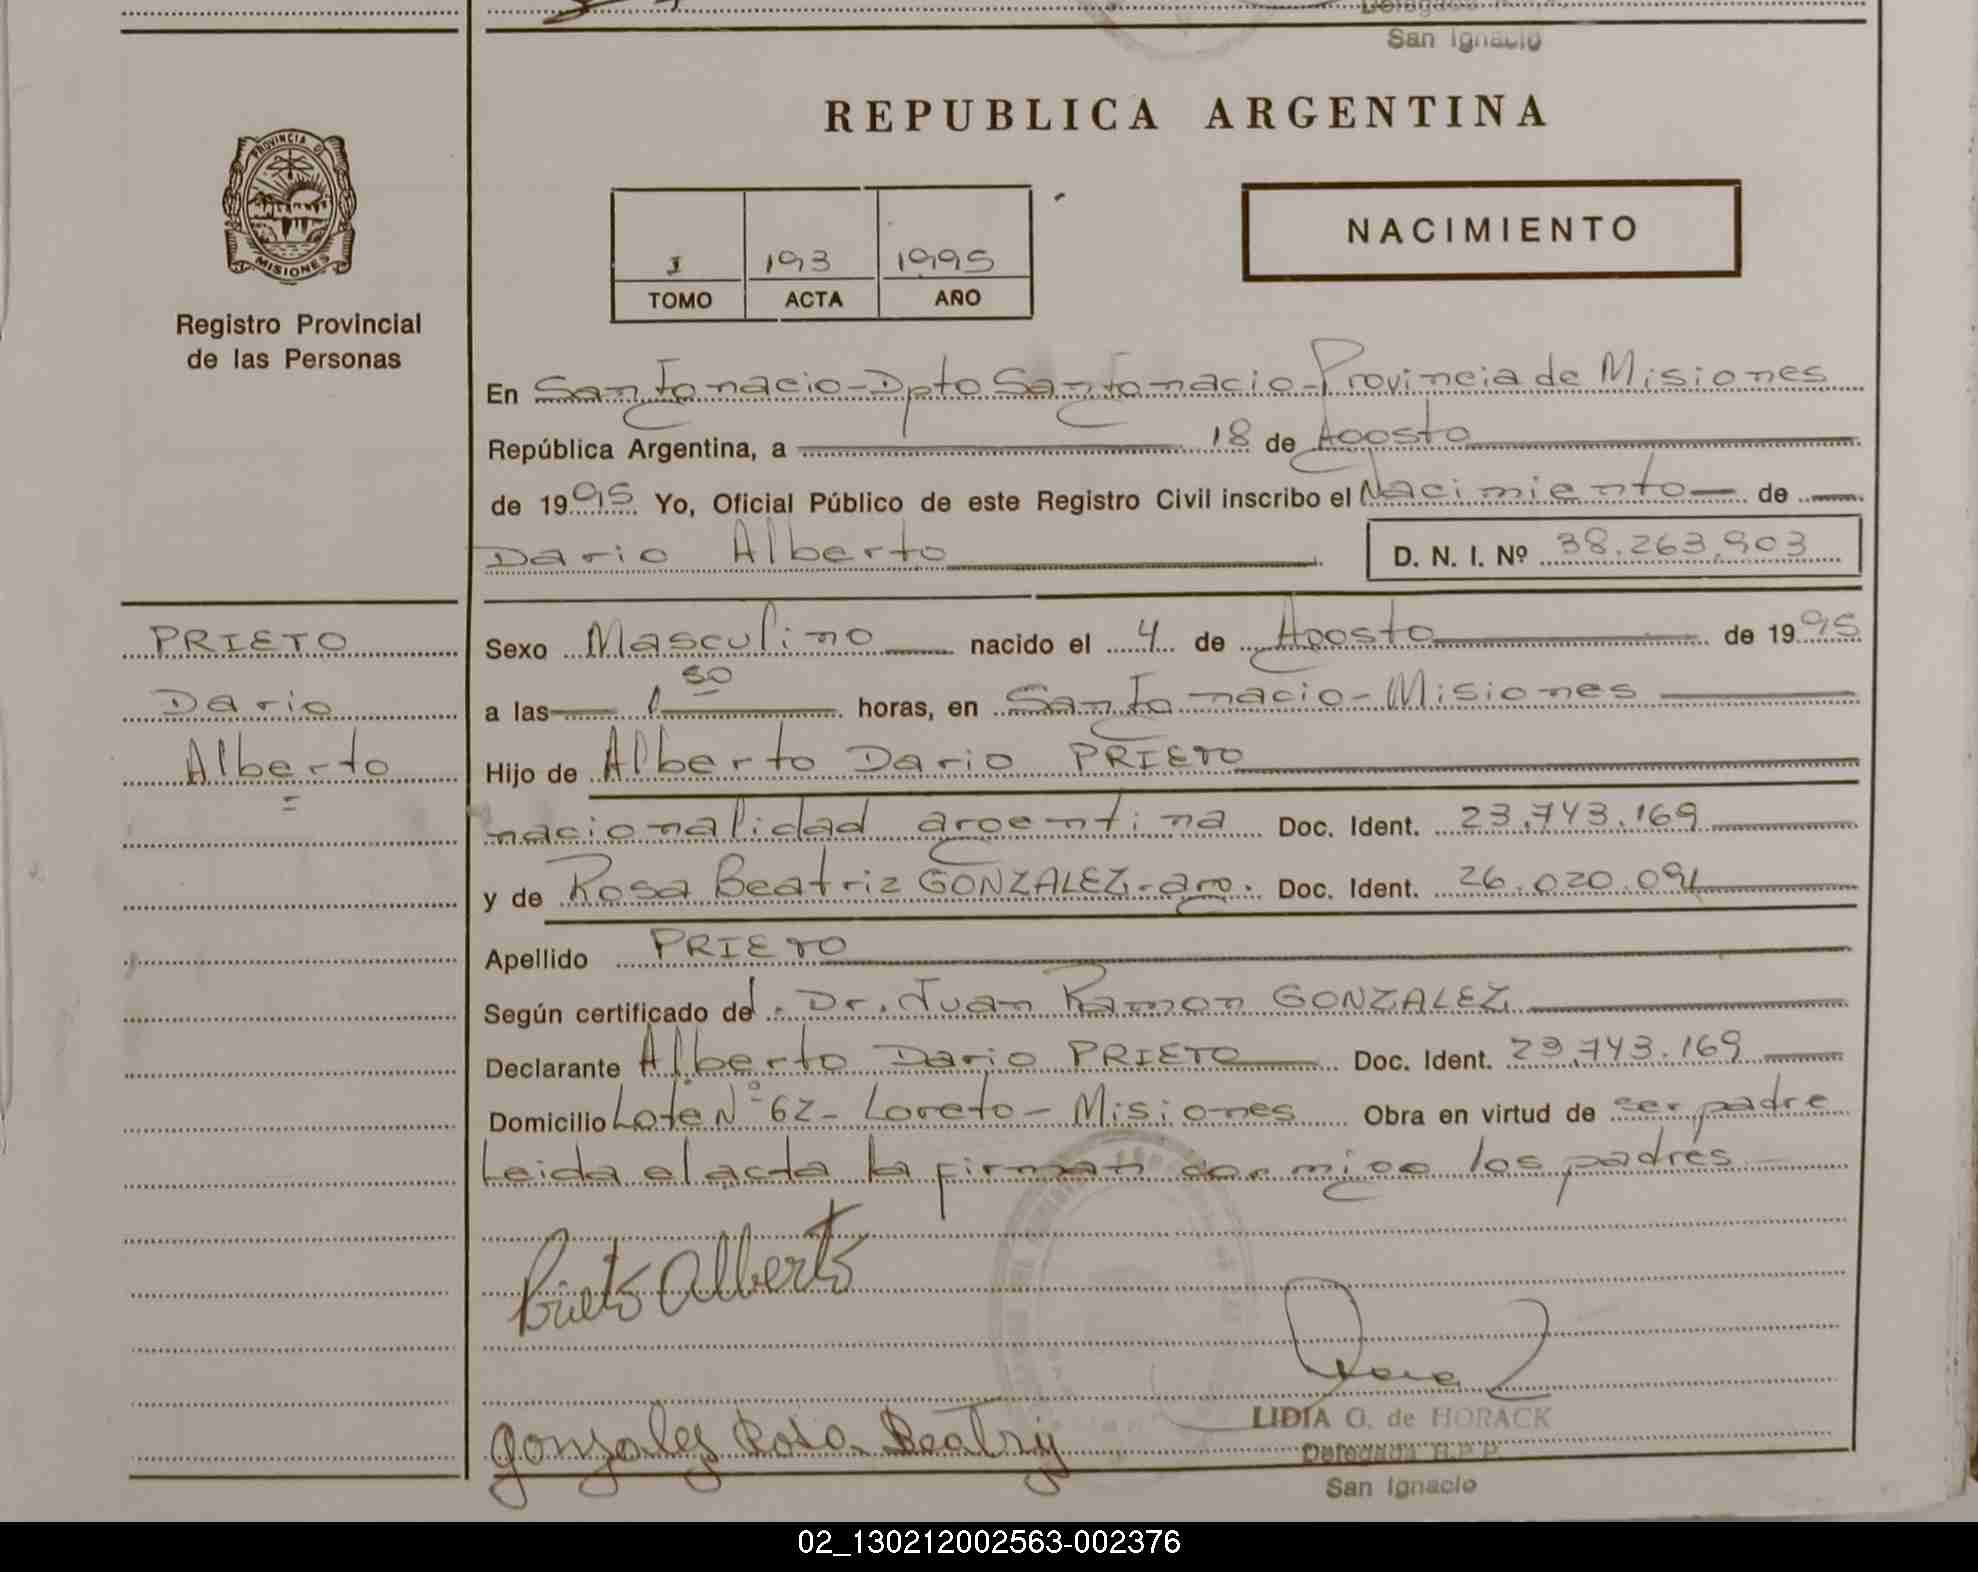 San Ignacio
PROVINCIA D
MISIONES
Registro Provincial
de las Personas
REPUBLICA ARGENTINA
I 193 1995
TOMO ACTA AÑO
NACIMIENTO
En San Ignacio-Dpto San Ignacio-Provincia de Misiones
República Argentina, a 18 de Agosto
de 1995 Yo, Oficial Público de este Registro Civil inscribo el Nacimiento de
Dario Alberto D. N. I. Nº 38.263.903
PRIETO
Dario
Alberto
Sexo Masculino nacido el 4 de Agosto de 1995
a las 1 50 horas, en San Ignacio-Misiones
Hijo de Alberto Dario PRIETO
nacionalidad argentina Doc. Ident. 23.743.169
y de Rosa Beatriz GONZALEZ-arg. Doc. Ident. 26.020.091
Apellido PRIETO
Según certificado del. Dr. Juan Ramon GONZALEZ
Declarante Alberto Dario PRIETO Doc. Ident. 23.743.169
Domicilio Lote Nº 62- Loreto- Misiones Obra en virtud de ser padre
Leida el acta la firman conmigo los padres
Prieto Alberto
Gonzalez Rosa Beatriz
LIDIA G. de HORACK
Delegada R.P.P.
San Ignacio
02_130212002563-002376